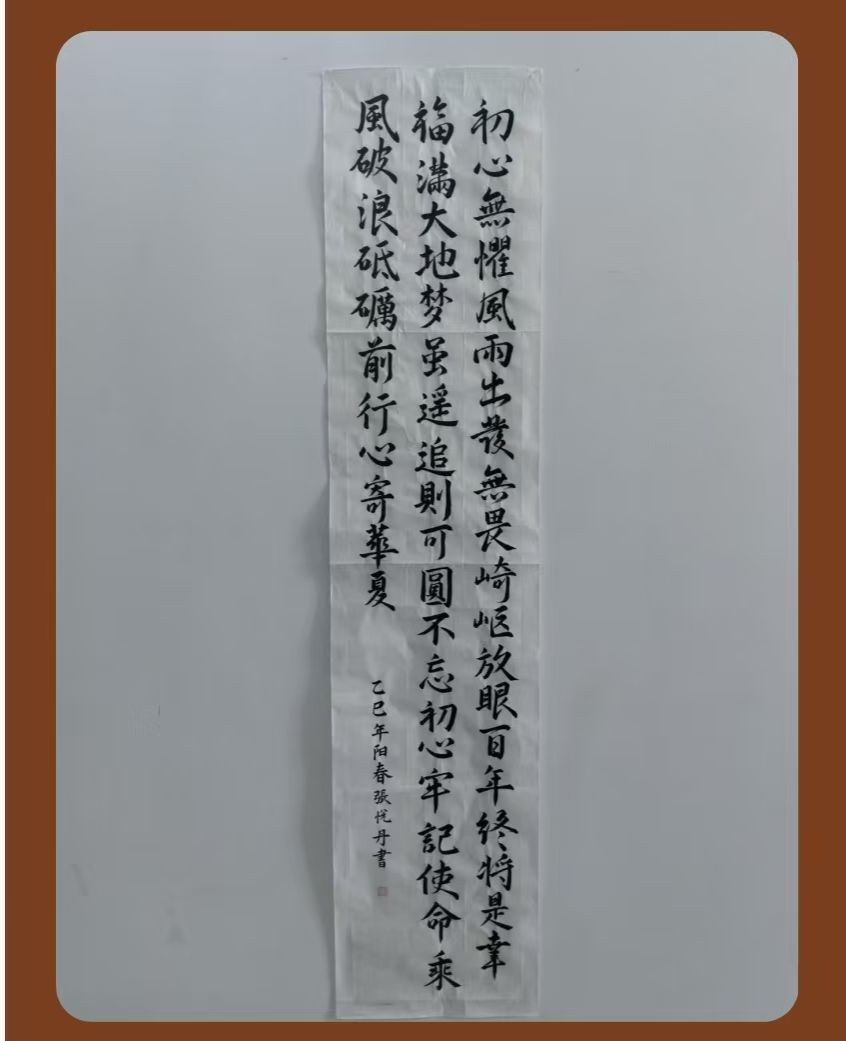 初心無懼風雨出發無畏崎岖放眼百年終将是幸
福滿大地梦虽遥追則可圓不忘初心牢記使命乘
風破浪砥礪前行心寄華夏
乙巳年阳春張悦丹書